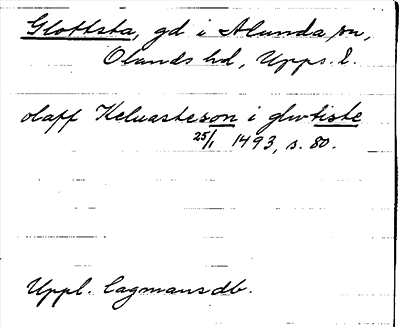 Glottsta, gd i Alunda sn,
Olands hd, Upps. l.
olaff Keluasteson i glwtiste
25/1 1493, s. 80.
Uppl. Lagmansdb.